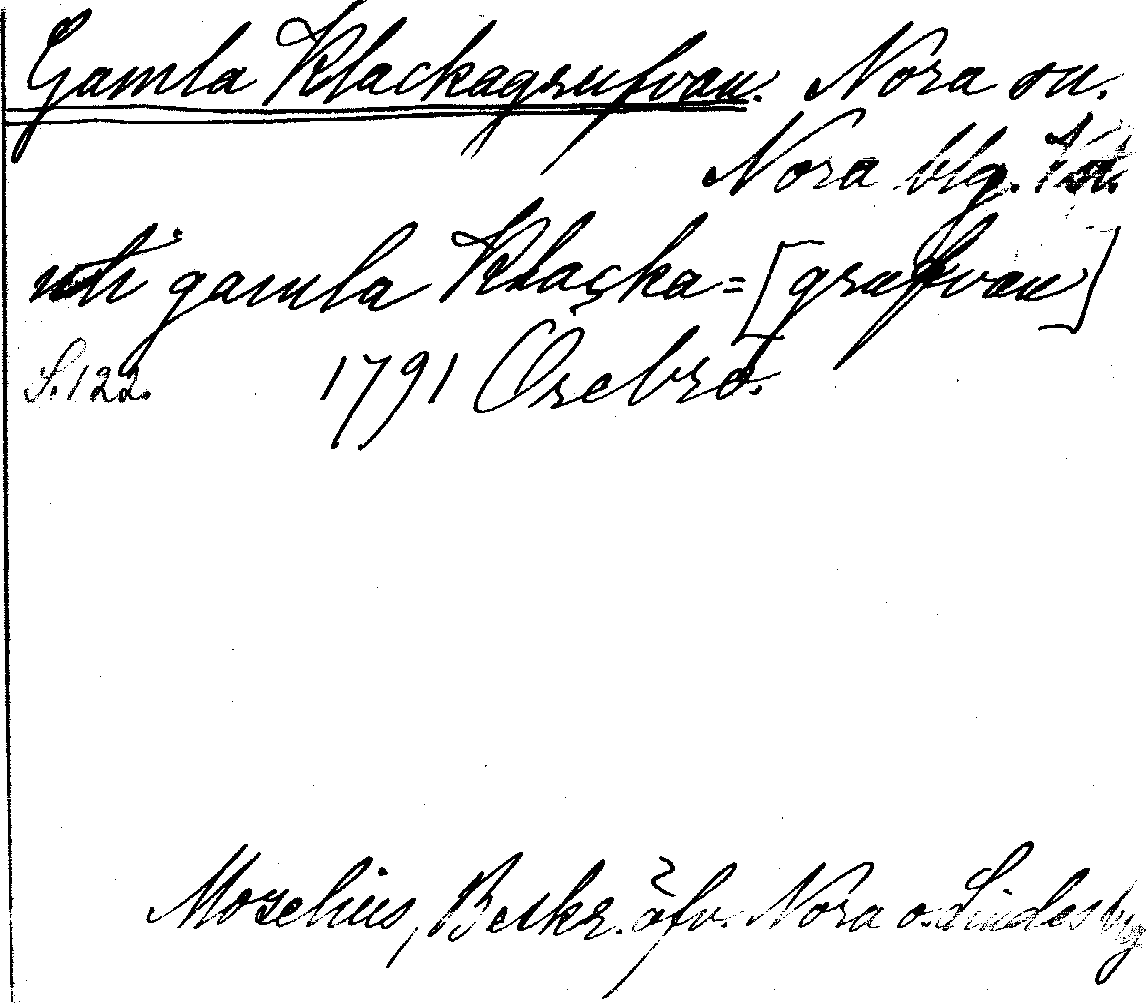 Gamla Klackagrufvan. Nora sn.
Nora blg. Vstm.
uti gamla Klacka=[grufvan]
S. 122. 1791 Örebro.
Moselius, Beskr. öfv. Nora o. Lindes blg